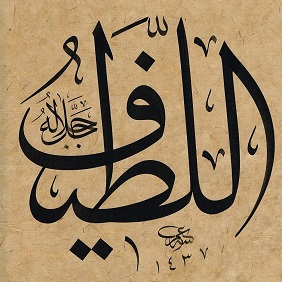 اللَّطِيفُ
جل جلاله
١٤٣٧